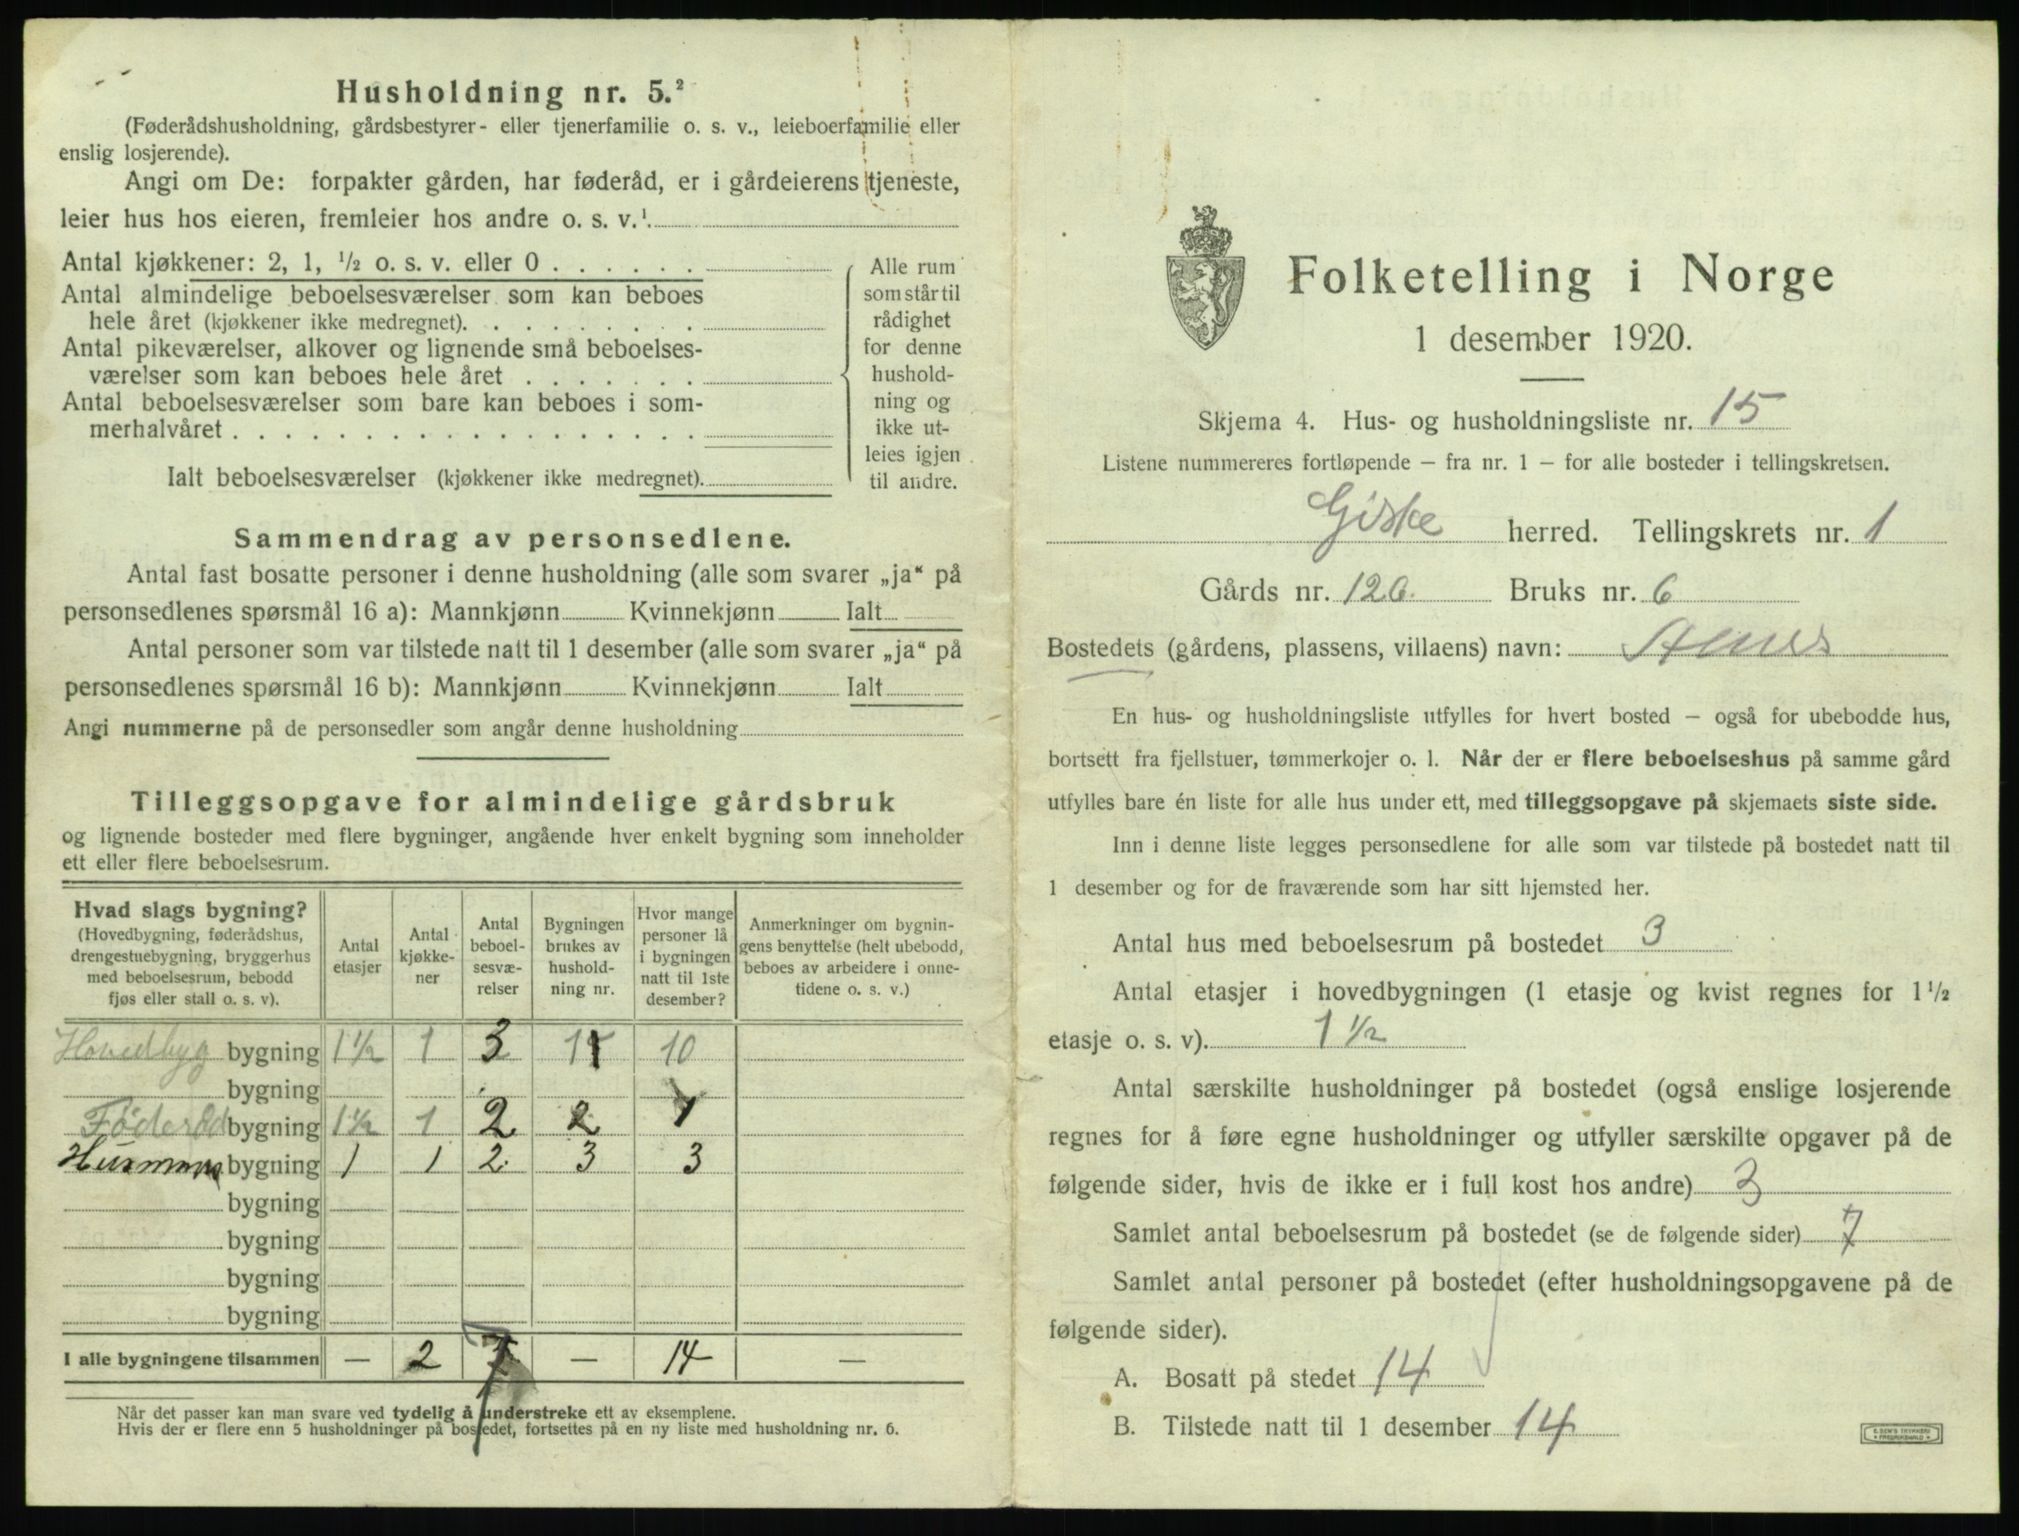 Husholdning nr. 5.²
(Føderådshusholdning, gårdsbestyrer- eller tjenerfamilie o. s. v., leieboerfamilie eller
enslig losjerende).
Angi om De: forpakter gården, har føderåd, er i gårdeierens tjeneste,
leier hus hos eieren, fremleier hos andre o. s. v.¹
Antal kjøkkener: 2, 1, ½ o. s. v. eller 0 . . . . . .
Antal almindelige beboelsesværelser som kan beboes
hele året (kjøkkener ikke medregnet). . . . . . . . .
Antal pikeværelser, alkover og lignende små beboelses-
værelser som kan beboes hele året . . . . . . .
Antal beboelsesværelser som bare kan beboes i som-
merhalvåret . . . . . . . . . . . . . . . . . .
Ialt beboelsesværelser (kjøkkener ikke medregnet).
Alle rum
som står til
rådighet
for denne
hushold-
ning og
ikke ut-
leies igjen
til andre.
Sammendrag av personsedlene.
Antal fast bosatte personer i denne husholdning (alle som svarer „ja“ på
personsedlenes spørsmål 16 a): Mannkjønn Kvinnekjønn Ialt
Antal personer som var tilstede natt til 1 desember (alle som svarer „ja“ på
personsedlenes spørsmål 16 b): Mannkjønn Kvinnekjønn Ialt
Angi nummerne på de personsedler som angår denne husholdning
Tilleggsopgave for almindelige gårdsbruk
og lignende bosteder med flere bygninger, angående hver enkelt bygning som inneholder
ett eller flere beboelsesrum.
Hvad slags bygning?
(Hovedbygning, føderådshus,
drengestuebygning, bryggerhus
med beboelsesrum, bebodd
fjøs eller stall o. s. v).
Antal
etasjer
Antal
kjøkke-
ner
Antal
beboel-
sesvæ-
relser
Bygningen
brukes av
hushold-
ning nr.
Hvor mange
personer lå
i bygningen
natt til 1ste
desember?
Anmerkninger om bygnin-
gens benyttelse (helt ubebodd,
beboes av arbeidere i onne-
tidene o. s. v.)
Hovedbyg bygning 1½ 1 3 1 10
bygning
Føderåd bygning 1½ 1 2 2 1
Husmans bygning 1 1 2 3 3
bygning
bygning
bygning
bygning
I alle bygningene tilsammen — 2 7 — 14 —
Når det passer kan man svare ved tydelig å understreke ett av eksemplene.
Hvis der er flere enn 5 husholdninger på bostedet, fortsettes på en ny liste med husholdning nr. 6.
Folketelling i Norge
1 desember 1920.
Skjema 4. Hus- og husholdningsliste nr. 15
Listene nummereres fortløpende – fra nr. 1 – for alle bosteder i tellingskretsen.
Giske herred. Tellingskrets nr. 1
Gårds nr. 126. Bruks nr. 6
Bostedets (gårdens, plassens, villaens) navn: Alnes
En hus- og husholdningsliste utfylles for hvert bosted – også for ubebodde hus,
bortsett fra fjellstuer, tømmerkojer o. l. Når der er flere beboelseshus på samme gård
utfylles bare én liste for alle hus under ett, med tilleggsopgave på skjemaets siste side.
Inn i denne liste legges personsedlene for alle som var tilstede på bostedet natt til
1 desember og for de fraværende som har sitt hjemsted her.
Antal hus med beboelsesrum på bostedet 3
Antal etasjer i hovedbygningen (1 etasje og kvist regnes for 1½
etasje o. s. v). 1½
Antal særskilte husholdninger på bostedet (også enslige losjerende
regnes for å føre egne husholdninger og utfyller særskilte opgaver på de
følgende sider, hvis de ikke er i full kost hos andre) 3
Samlet antal beboelsesrum på bostedet (se de følgende sider) 7
Samlet antal personer på bostedet (efter husholdningsopgavene på de
følgende sider).
A. Bosatt på stedet 14
B. Tilstede natt til 1 desember 14